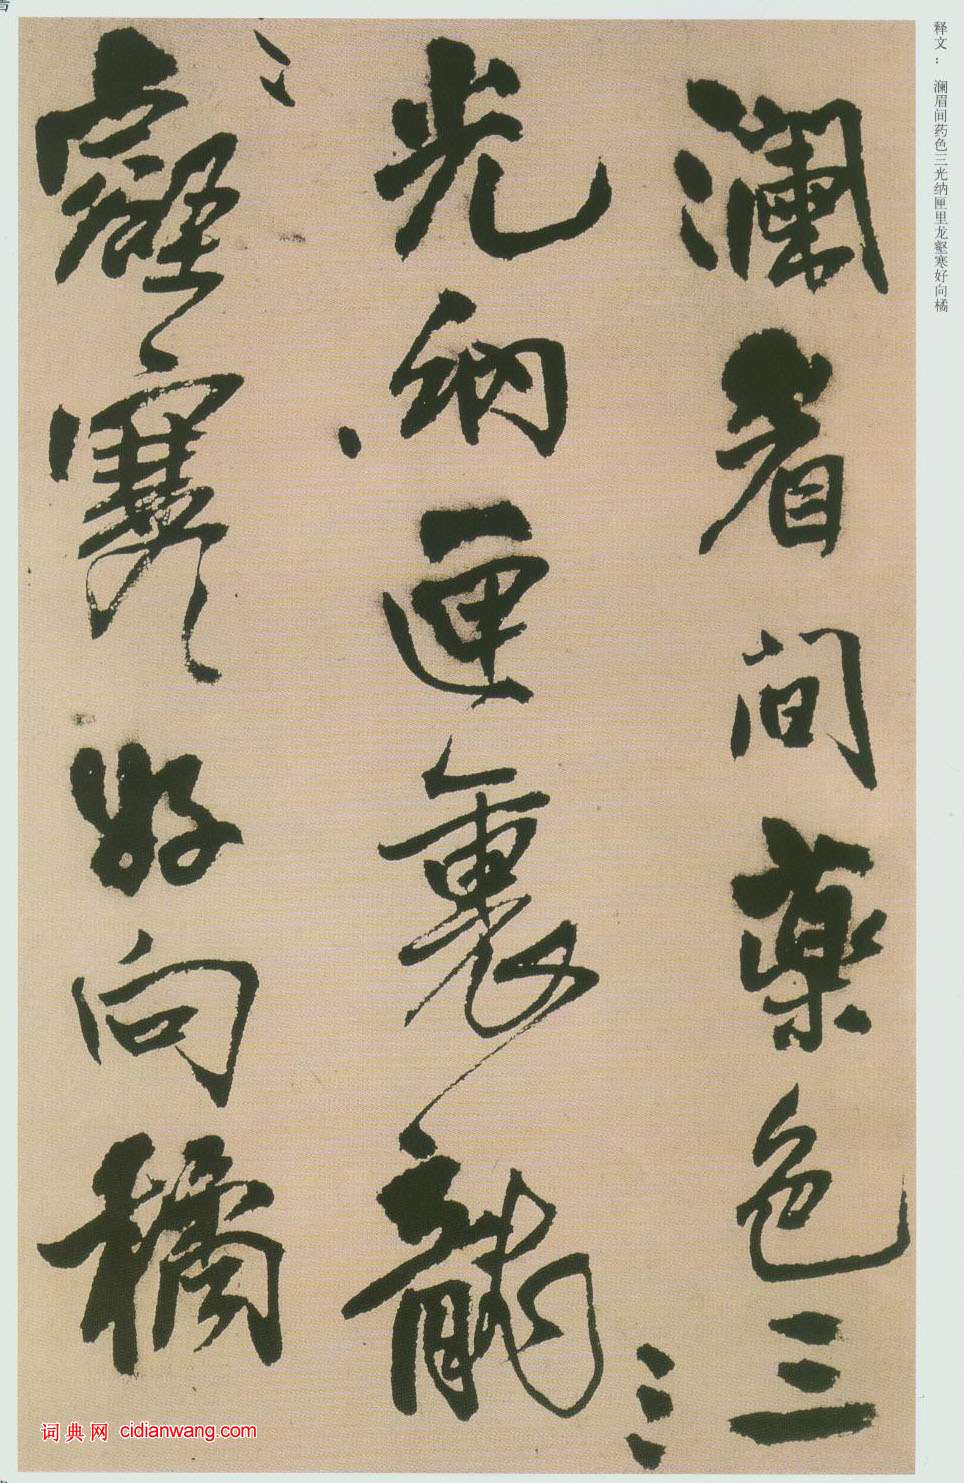 释文： 澜眉间药色三光纳匣里龙壑寒好向橘
澜眉间藥色三
光纳匣裏龍
壑寒好向橘
词典网 cidianwang.com